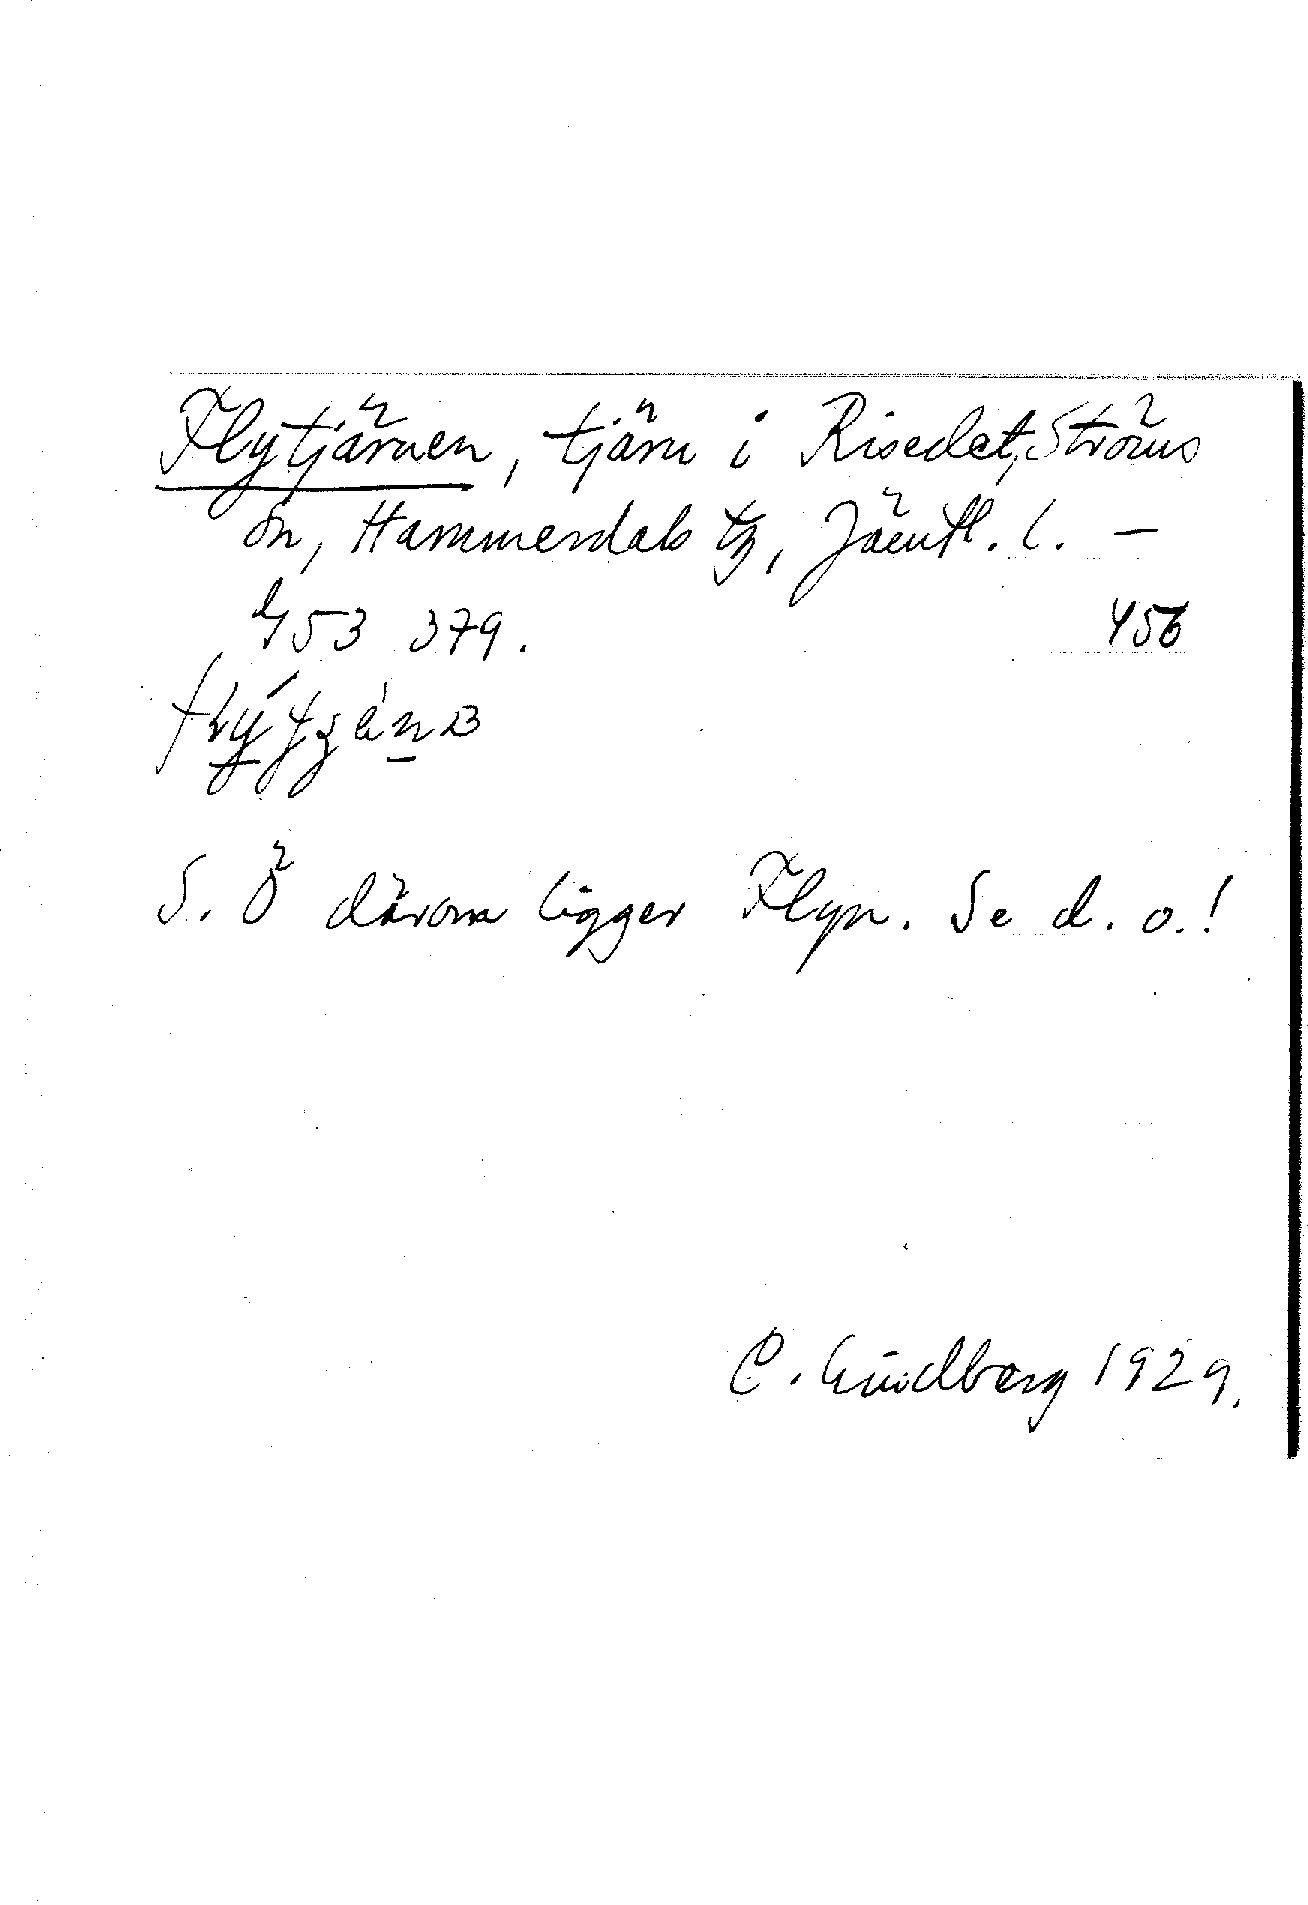 Flytjärnen, tjärn i Risedet, Ströms
sn, Hammerdals tg, Jämtl. l. –
453 379. 456
S. Ö därom ligger Flyn. Se d. o.!
C. Lindberg 1929.